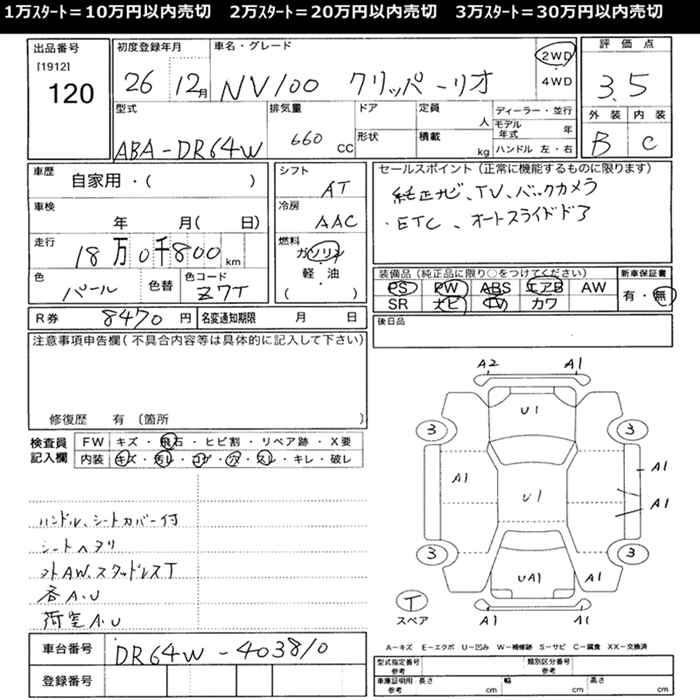 1万ｽﾀｰﾄ＝10万円以内売切　2万ｽﾀｰﾄ＝20万円以内売切　3万ｽﾀｰﾄ＝30万円以内売切
出品番号
[1912]
120
初度登録年月
26 12月
車名・グレード
NV100 クリッパーリオ
2WD
4WD
評価点
3.5
外装 内装
B C
型式
ABA-DR64W
排気量
660 CC
ドア
形状
定員 人
積載 kg
ディーラー・並行
モデル年式 年
ハンドル 左・右
車歴
自家用・( )
車検
年 月( 日)
走行
18万0千800km
色
パール
色替
色コード
Z7T
シフト
AT
冷房
AAC
燃料
ガソリン
軽・油
( )
セールスポイント (正常に機能するものに限ります)
純正ナビ、TV、バックカメラ
・ETC、オートスライドドア
装備品 (純正品に限り○をつけてください)
PS PW ABS エアB AW
SR ナビ TV カワ
新車保証書
有・無
R券 8470 円 名変通知期限 月 日
後日品
注意事項申告欄(不具合内容等は具体的に記入して下さい)
修復歴 有 (箇所 )
検査員
記入欄
FW キズ・飛石・ヒビ割・リペア跡・X要
内装 キズ・汚レ・コゲ・穴・スレ・キレ・破レ
ハンドル、シートカバー付
シートヘタリ
外AW、スタッドレスT
各A.U
荷室A.U
A2 A1
U1
3 3
A1
A1
U1
A1
3 3
UA1
A1
T
スペア
A1 A1
A－キズ E－エクボ U－凹み W－補修跡 S－サビ C－腐食 XX－交換済
車台番号 DR64W-403810
登録番号
型式指定番号 参考
類別区分番号 参考
車庫証明用 参考
長さ cm 幅 cm 高さ cm